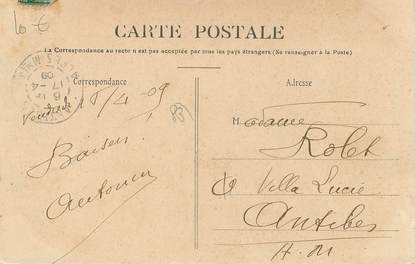 10 €
CARTE POSTALE
La Correspondance au recto n est pas acceptée par tous les pays étrangers (Se renseigner à la Poste)
Correspondance
Adresse
17 -4
09
Vendredi 16/4 -09
83
Baisers
Antonin
Madame
Rolet
Villa Lucie
Antibes
A. M